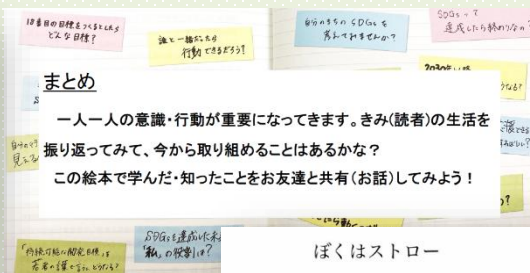 18番目の目標をつくるとしたら
どんな目標?
誰と一緒だったら
行動できるだろう?
自分のまちのSDGsを
考えてみませんか?
SDGsって
達成したら終わりなの?
2030年
まとめ
一人一人の意識・行動が重要になってきます。きみ(読者)の生活を
振り返ってみて、今から取り組めることはあるかな?
この絵本で学んだ・知ったことをお友達と共有(お話)してみよう!
「持続可能な開発目標」を
若者の言葉で言うとどうなる?
SDGsを達成した未
「私」の役割は?
ぼくはストロー